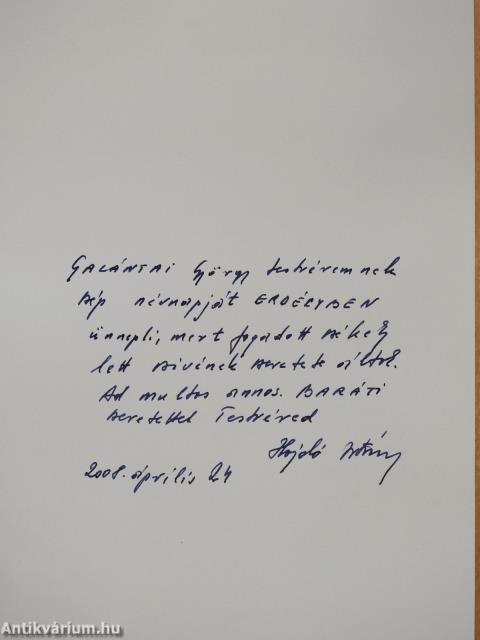 GALÁNTAI György testvéremnek
szép névnapját ERDÉLYBEN
ünnepli, mert fogadott székely
lett szivének szeretete által.
Ad multos annos. BARÁTI
szeretettel Testvéred
Hajdó István
2008. április 24
Antikvárium.hu